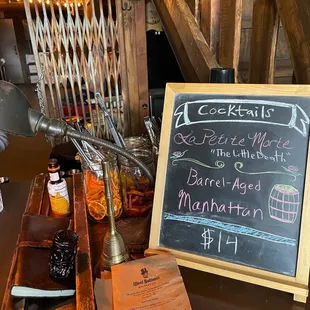 Cocktails
La Petite Morte
"The Little Death"
Barrel-Aged
Manhattan
$14